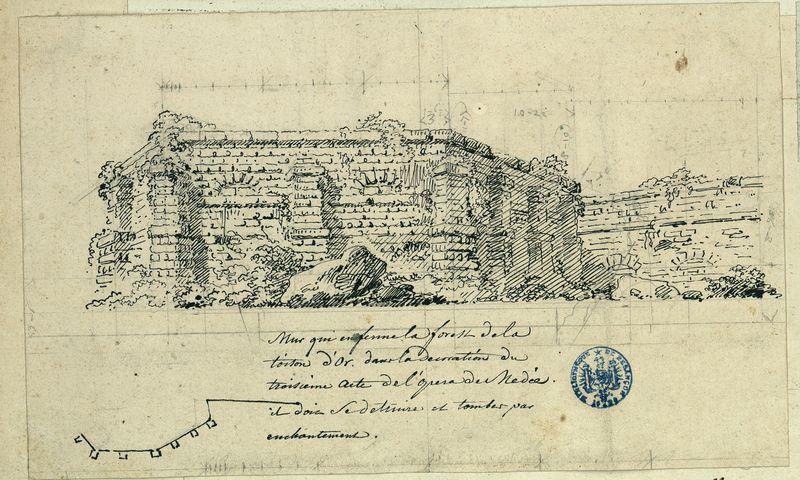 10-2
Mur qui enferme la forest de la
toison d'Or. dans la decoration du
troisieme acte de l'opera de Medée.
il doit se detruire et tomber par
enchantement.
BIBLIOTHEQUE DE BESANÇON